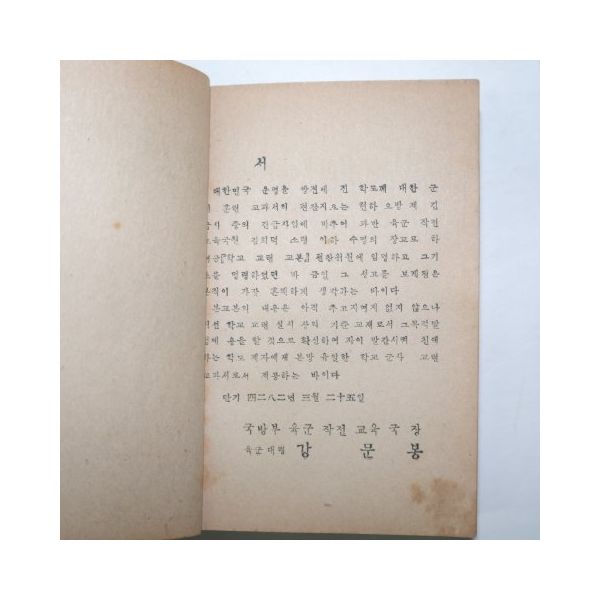 서
대한민국 운명을 쌍견에 진 학도에 대한 군
훈련 교과서의 편찬지요는
중의 긴급지임에 비추어 과반 육군 작전
교육국원 김희덕 소령 이하 수명의 장교로 하
학교 교련 교본』 편찬위원에 임명하고 그 기
를 명령하였던 바 금일 그 성고를 보게됨은
본직이 가장 흔쾌하게 생각하는 바이다
본교본의 내용은 아직 추고지여지 없지 않으나
학교 교련 실시 상의 기준 교재로서 그목적달
에 용을 할 것으로 확신하며 자이 발간시켜 친애
하는 학도 제자에게 본방 유일한 학교 군사 교련
교과서로서 제공하는 바이다
단기 四二八二년 三월 二十五일
국방부 육군 작전 교육 국 장
육군 대령 강 문 봉